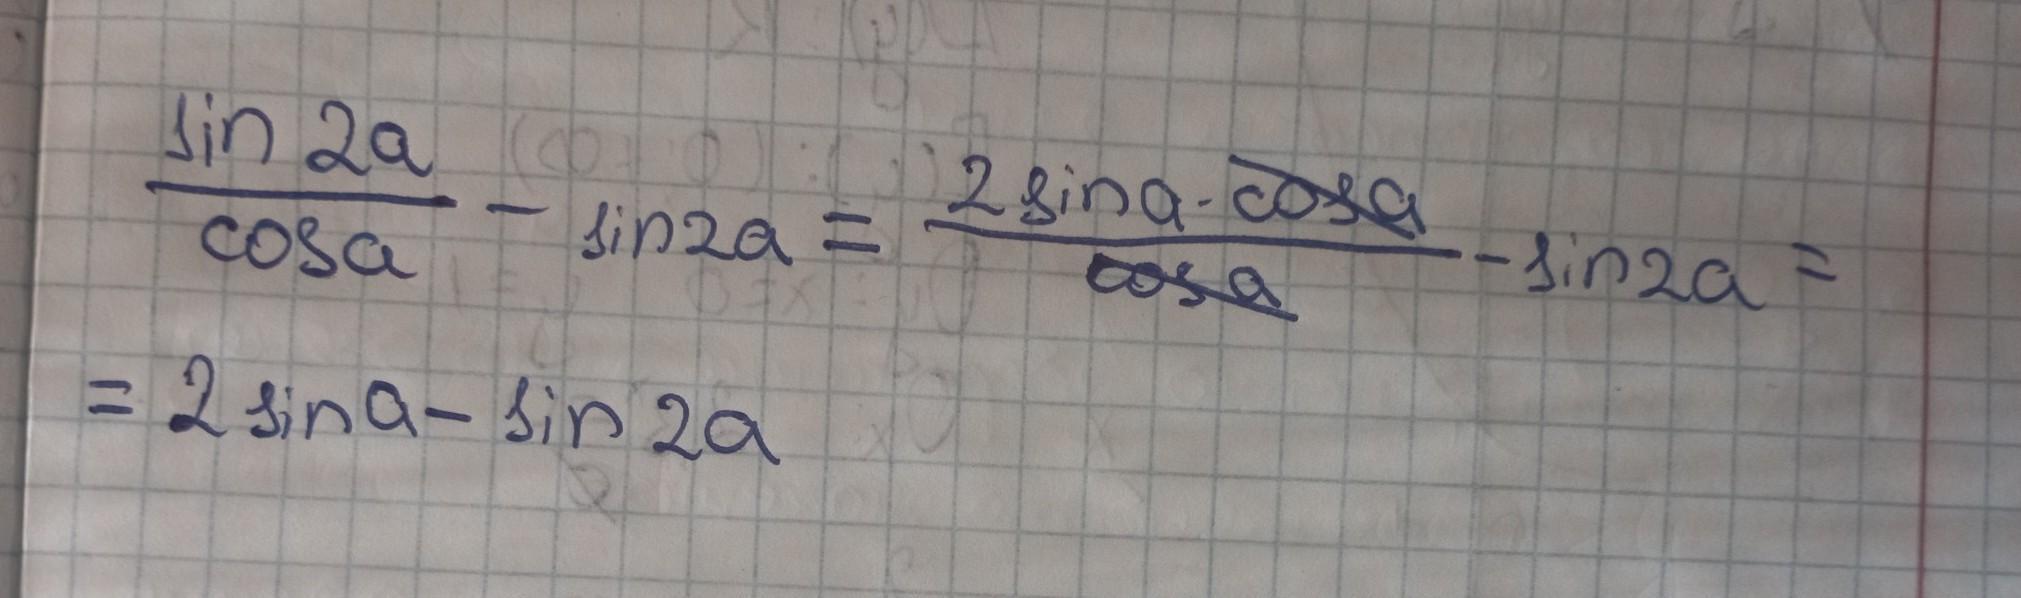 sin 2a / cosa - sin2a = 2sina·cosa / cosa - sin2a =
= 2sina - sin 2a